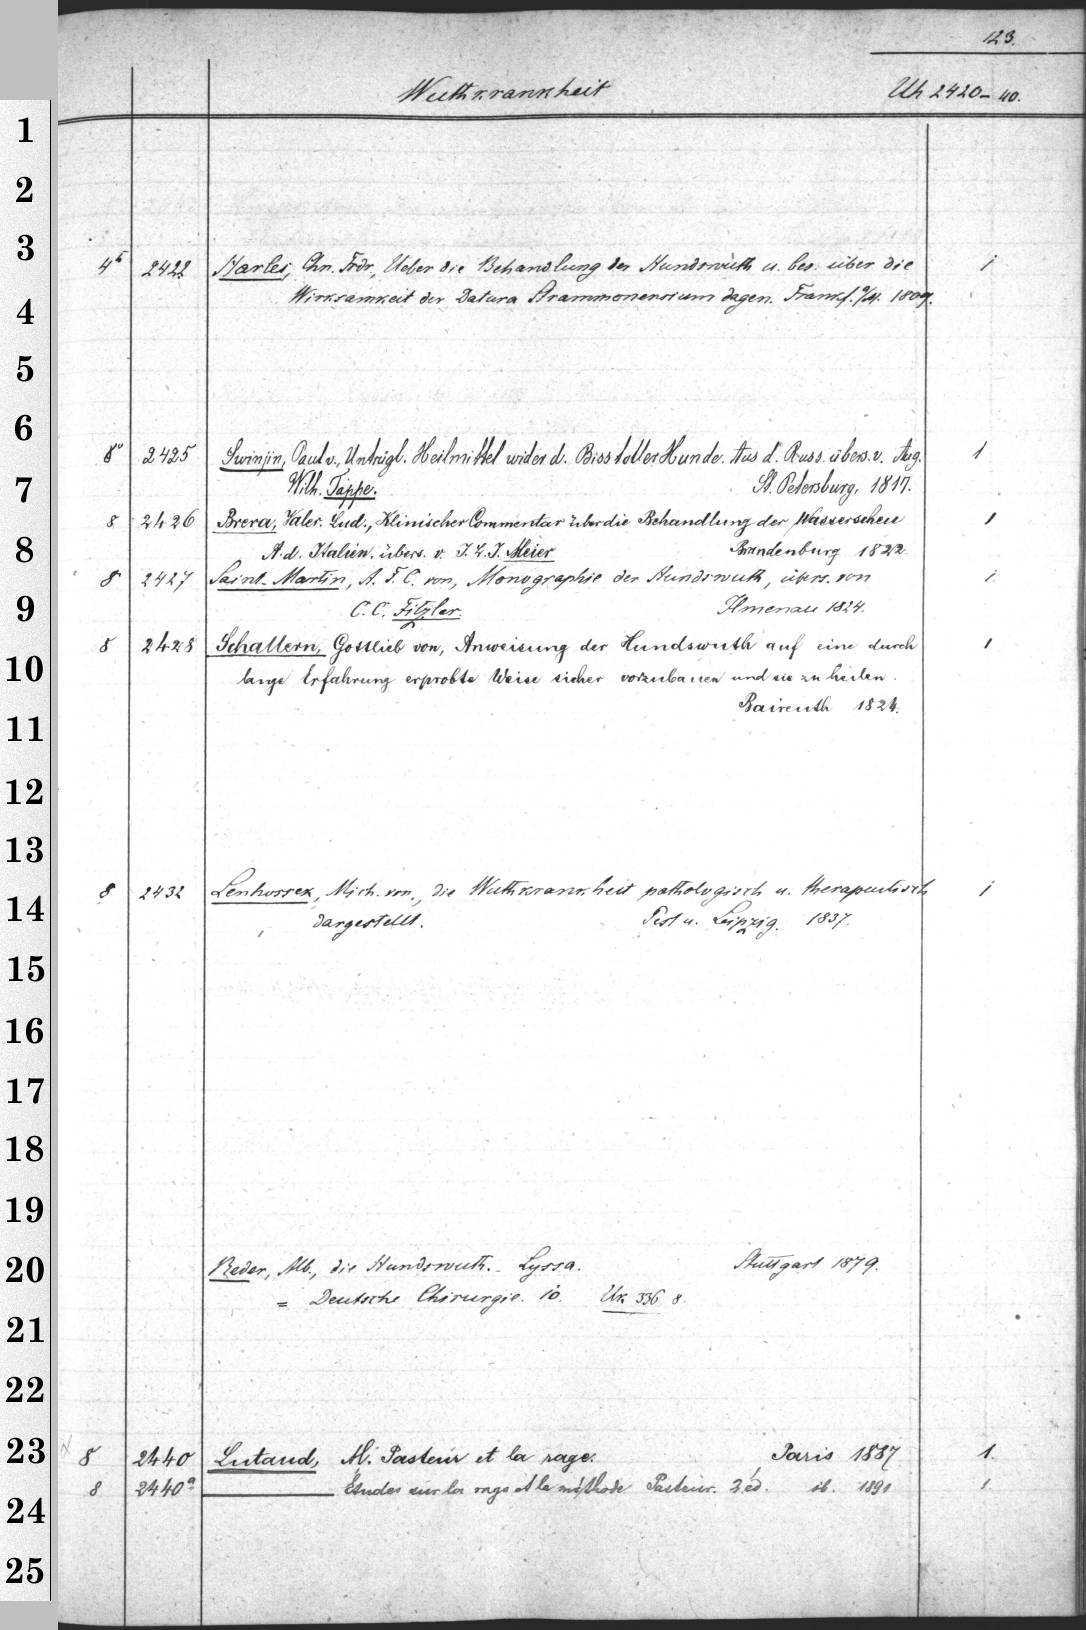 123.
Wuthkrankheit Uh 2420-40.
1
2
3
4° 2422 Harles, Chn. Frdr., Ueber die Behandlung der Hundswuth u. bes. über die 1
Wirksamkeit der Datura Strammonensium dagen. Frankf. a/M. 1809.
4
5
6
8° 2425 Swinjin, Paul v., Untrügl. Heilmittel wider d. Biss toller Hunde. Aus d. Russ. übers. v. Aug. 1
7
Wilh. Tappe. St. Petersburg, 1817.
8 2426 Brera, Valer. Lud., Klinischer Commentar über die Behandlung der Wasserscheu 1
8
A. d. Italien. übers. v. J. L. J. Meier Brandenburg 1822.
8 2427 Saint-Martin, A. F. C. von, Monographie der Hundswuth, übers. von 1.
9
C. C. Fitzler. Ilmenau 1824.
8 2428 Schallern, Gottlieb von, Anweisung der Hundswuth auf eine durch 1
10
lange Erfahrung erprobte Weise sicher vorzubauen und sie zu heilen.
Baireuth 1824.
11
12
13
8 2432 Lenhossek, Mich. von., die Wuthkrankheit pathologisch u. therapeutisch 1
14
dargestellt. Pest u. Leipzig. 1837.
15
16
17
18
19
Reder, Alb., die Hundswuth. Lyssa. Stuttgart 1879.
20
= Deutsche Chirurgie. 10. Uk 336 8.
21
22
23
8 2440 Lutaud, M. Pasteur et la rage. Paris 1887 1.
8 2440a Études sur la rage et la méthode Pasteur. 2 éd. ib. 1891 1.
24
25